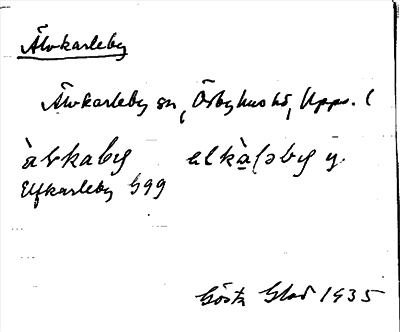 Älvkarleby
Älvkarleby sn, Örbyhus hd, Upps. l
àvkaby elkà(əby y.
Elfkarleby 1399
Gösta 1935